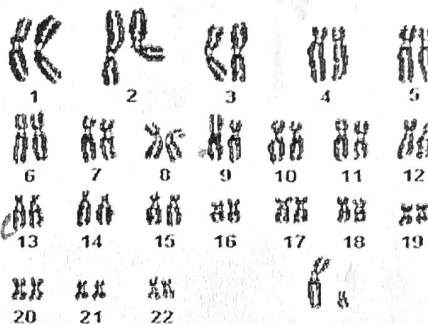 1 2 3 4 5
6 7 8 9 10 11 12
13 14 15 16 17 18 19
20 21 22